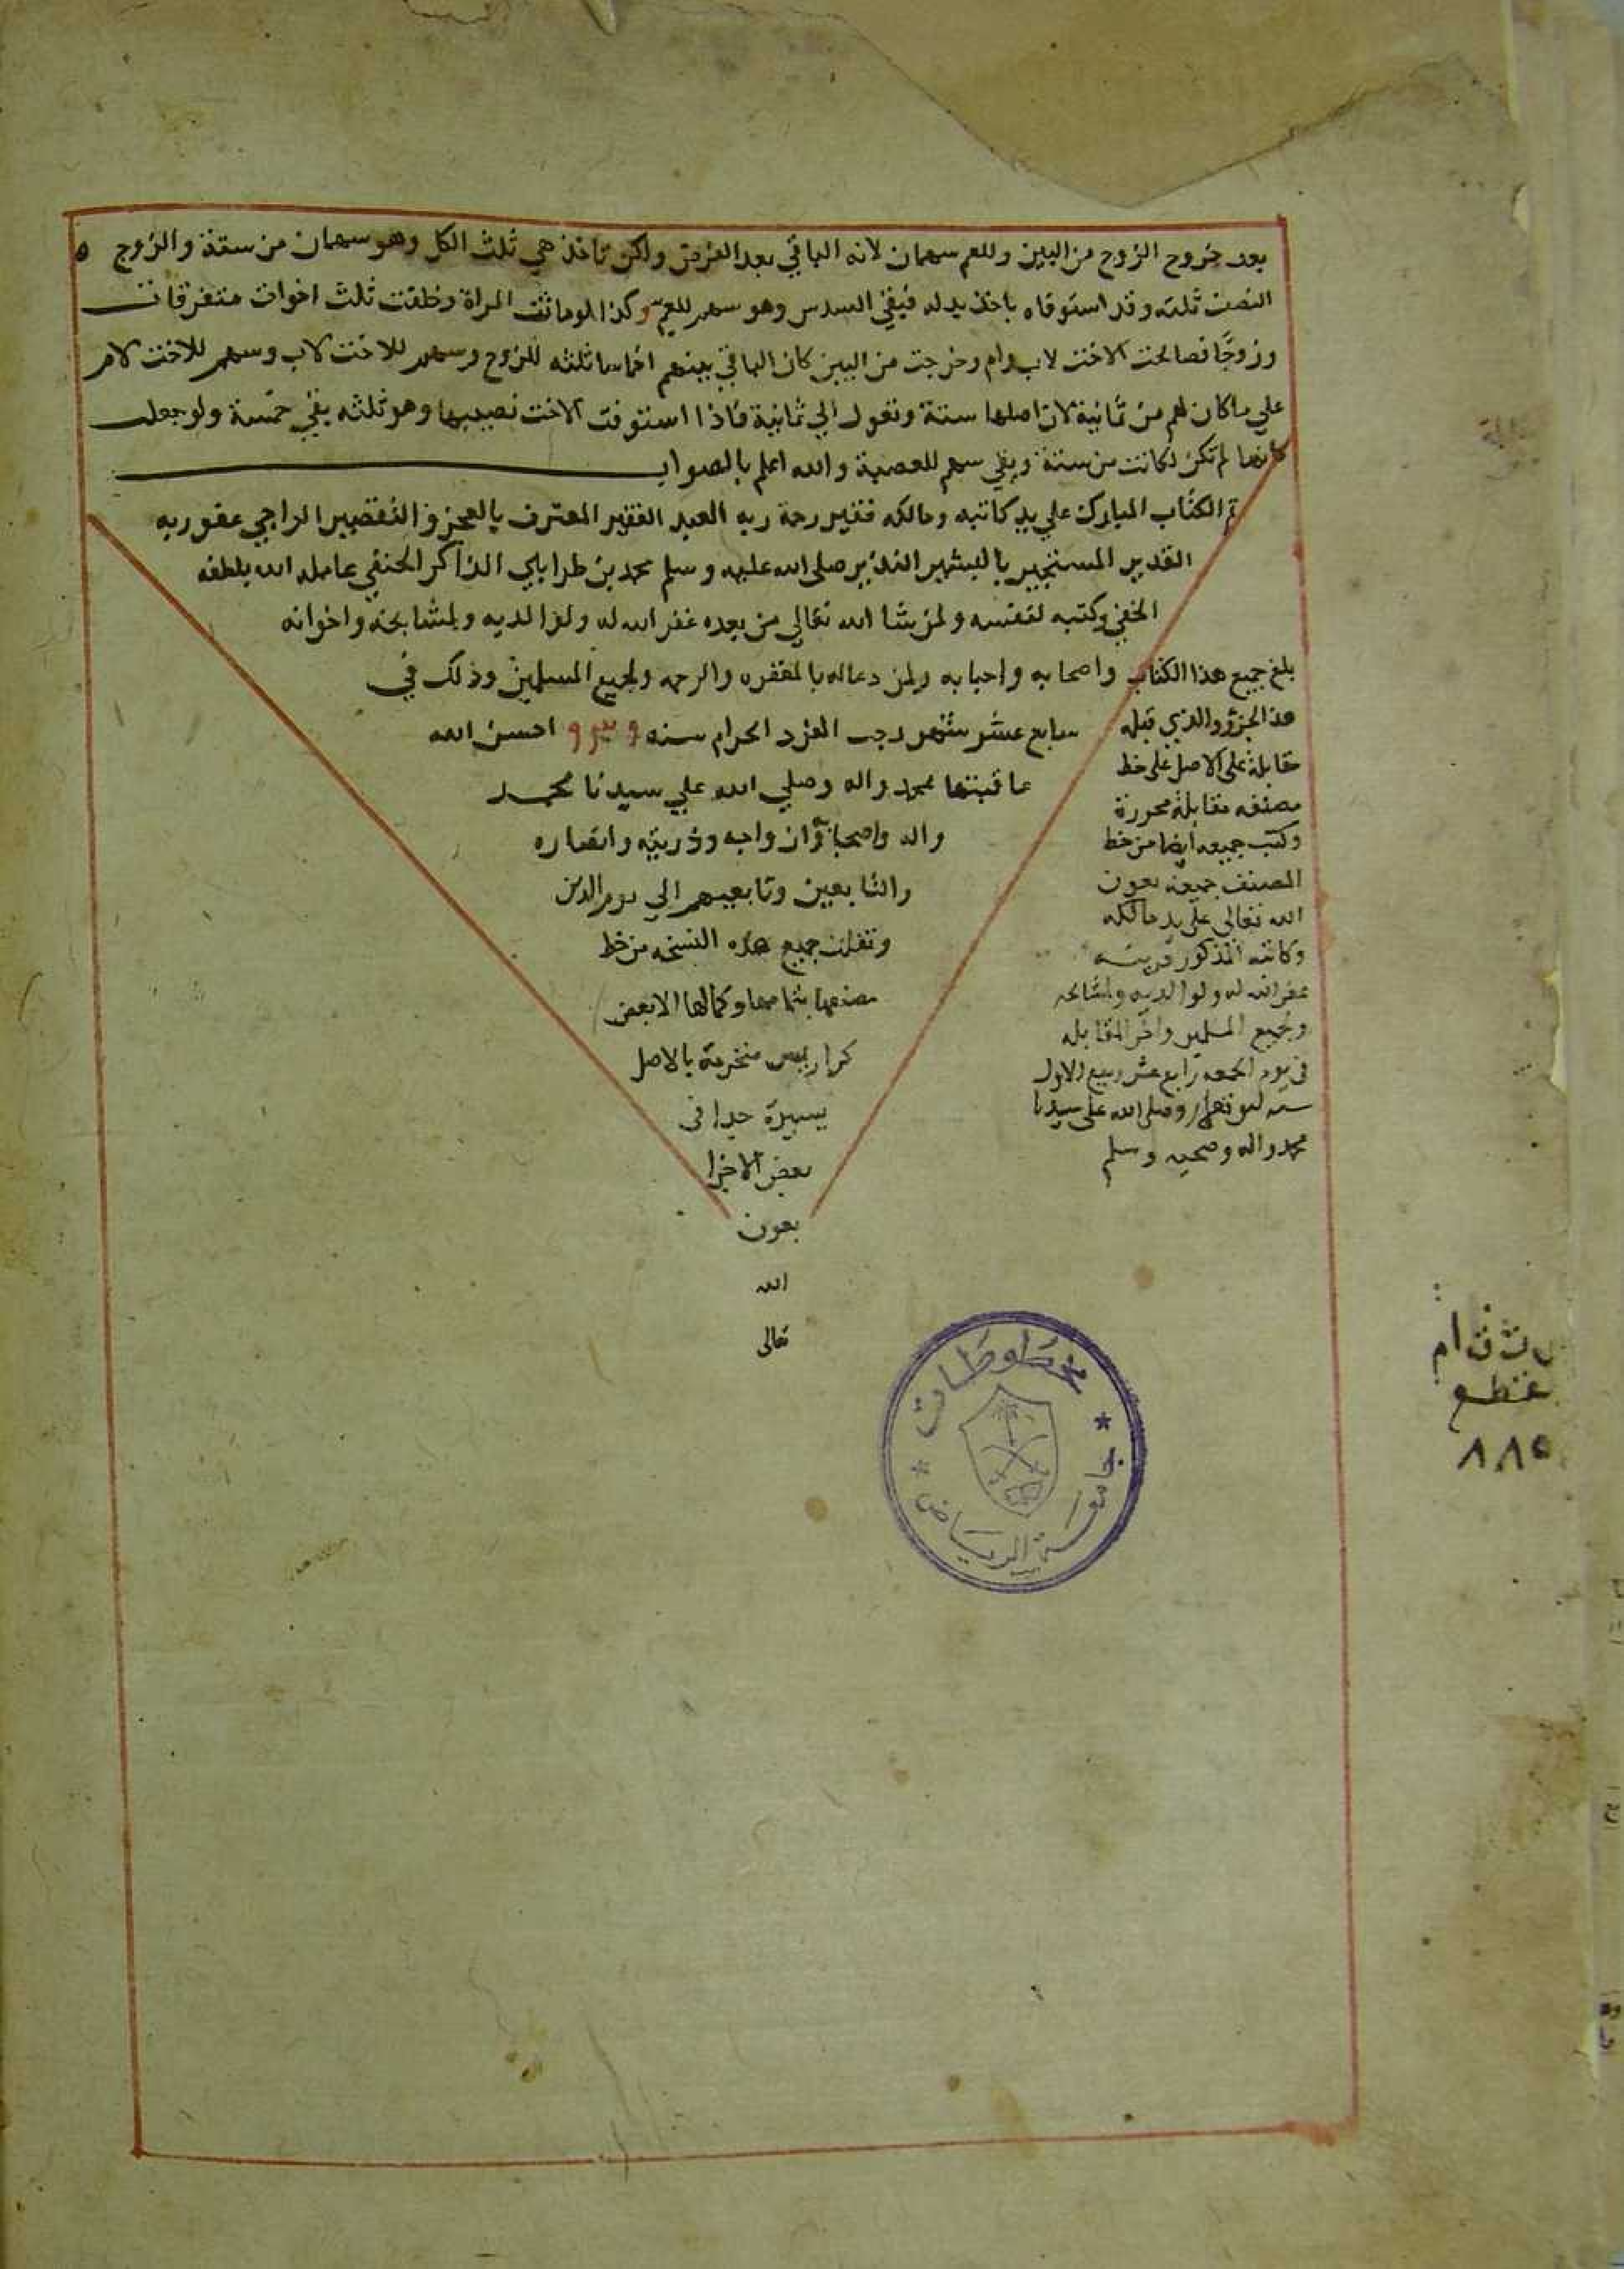 بعد خروج الزوج من البين وللعم سهمان لانه الباقي بعد الفرض ولكن تاخذ هي ثلث الكل وهو سهمان من ستة والزوج ه
النصف ثلثه وقد استوفاه باخذ بدله فيبقي السدس وهو سهم للعم وكذا لو ماتت المراة وخلفت ثلث اخوات متفرقات
وزوجًا فصالحت الاخت لاب وام وخرجت من البين كان الباقي بينهم اخماسا ثلثه للزوج وسهم للاخت لاب وسهم للاخت لام
علي ما كان لهم من ثمانية لان اصلها ستة وتعول الي ثمانية فاذا استوفت الاخت نصيبها وهو ثلثه بقي خمسة ولو جعلت
كانها لم تكن لكانت من ستة وبقي سهم للعصبة والله اعلم بالصواب
تم الكتاب المبارك علي يد كاتبه ومالكه فقير رحمة ربه العبد الفقير المعترف بالعجز والتقصير الراجي عفو ربه
القدير المستجير بالبشير النذير صلى الله عليه وسلم محمد بن طرابلي الذاكر الحنفي عامله الله بلطفه
الخفي وكتبه لنفسه ولمن شا الله تعالي من بعده غفر الله له ولوالديه ولمشايخه واخوانه
واصحابه واحبابه ولمن دعا له بالمغفره والرحمه ولجميع المسلمين وذلك في
سابع عشر شهر رجب الفرد الحرام سنه احسن الله
عاقبتها بمحمد واله وصلي الله علي سيدنا محمد
واله واصحابه وازواجه وذريته وانصاره
والتابعين وتابعيهم الي يوم الدين
ونقلت جميع هذه النسخه من خط
مصنفها بتمامها وكمالها الا بعض
كراريس منخرمة بالاصل
يسيرة جدا في
بعض الاجزا
بعون
الله
تعالى
بلغ جميع هذا الكتاب
هذا الجزؤ والذي قبله
مقابلة على الاصل على خط
مصنفه مقابلة محررة
وكتب جميعه ايضا من خط
المصنف جميعه بعون
الله تعالى على يد مالكه
وكاتبه المذكور قرينه
غفر الله له ولوالديه ولمشايخه
ولجميع المسلمين واخر المقابله
في يوم الجمعه رابع عشر ربيع الاول
سنه وصلى الله على سيدنا
محمد واله وصحبه وسلم
مخطوطات
* جامعة الرياض *